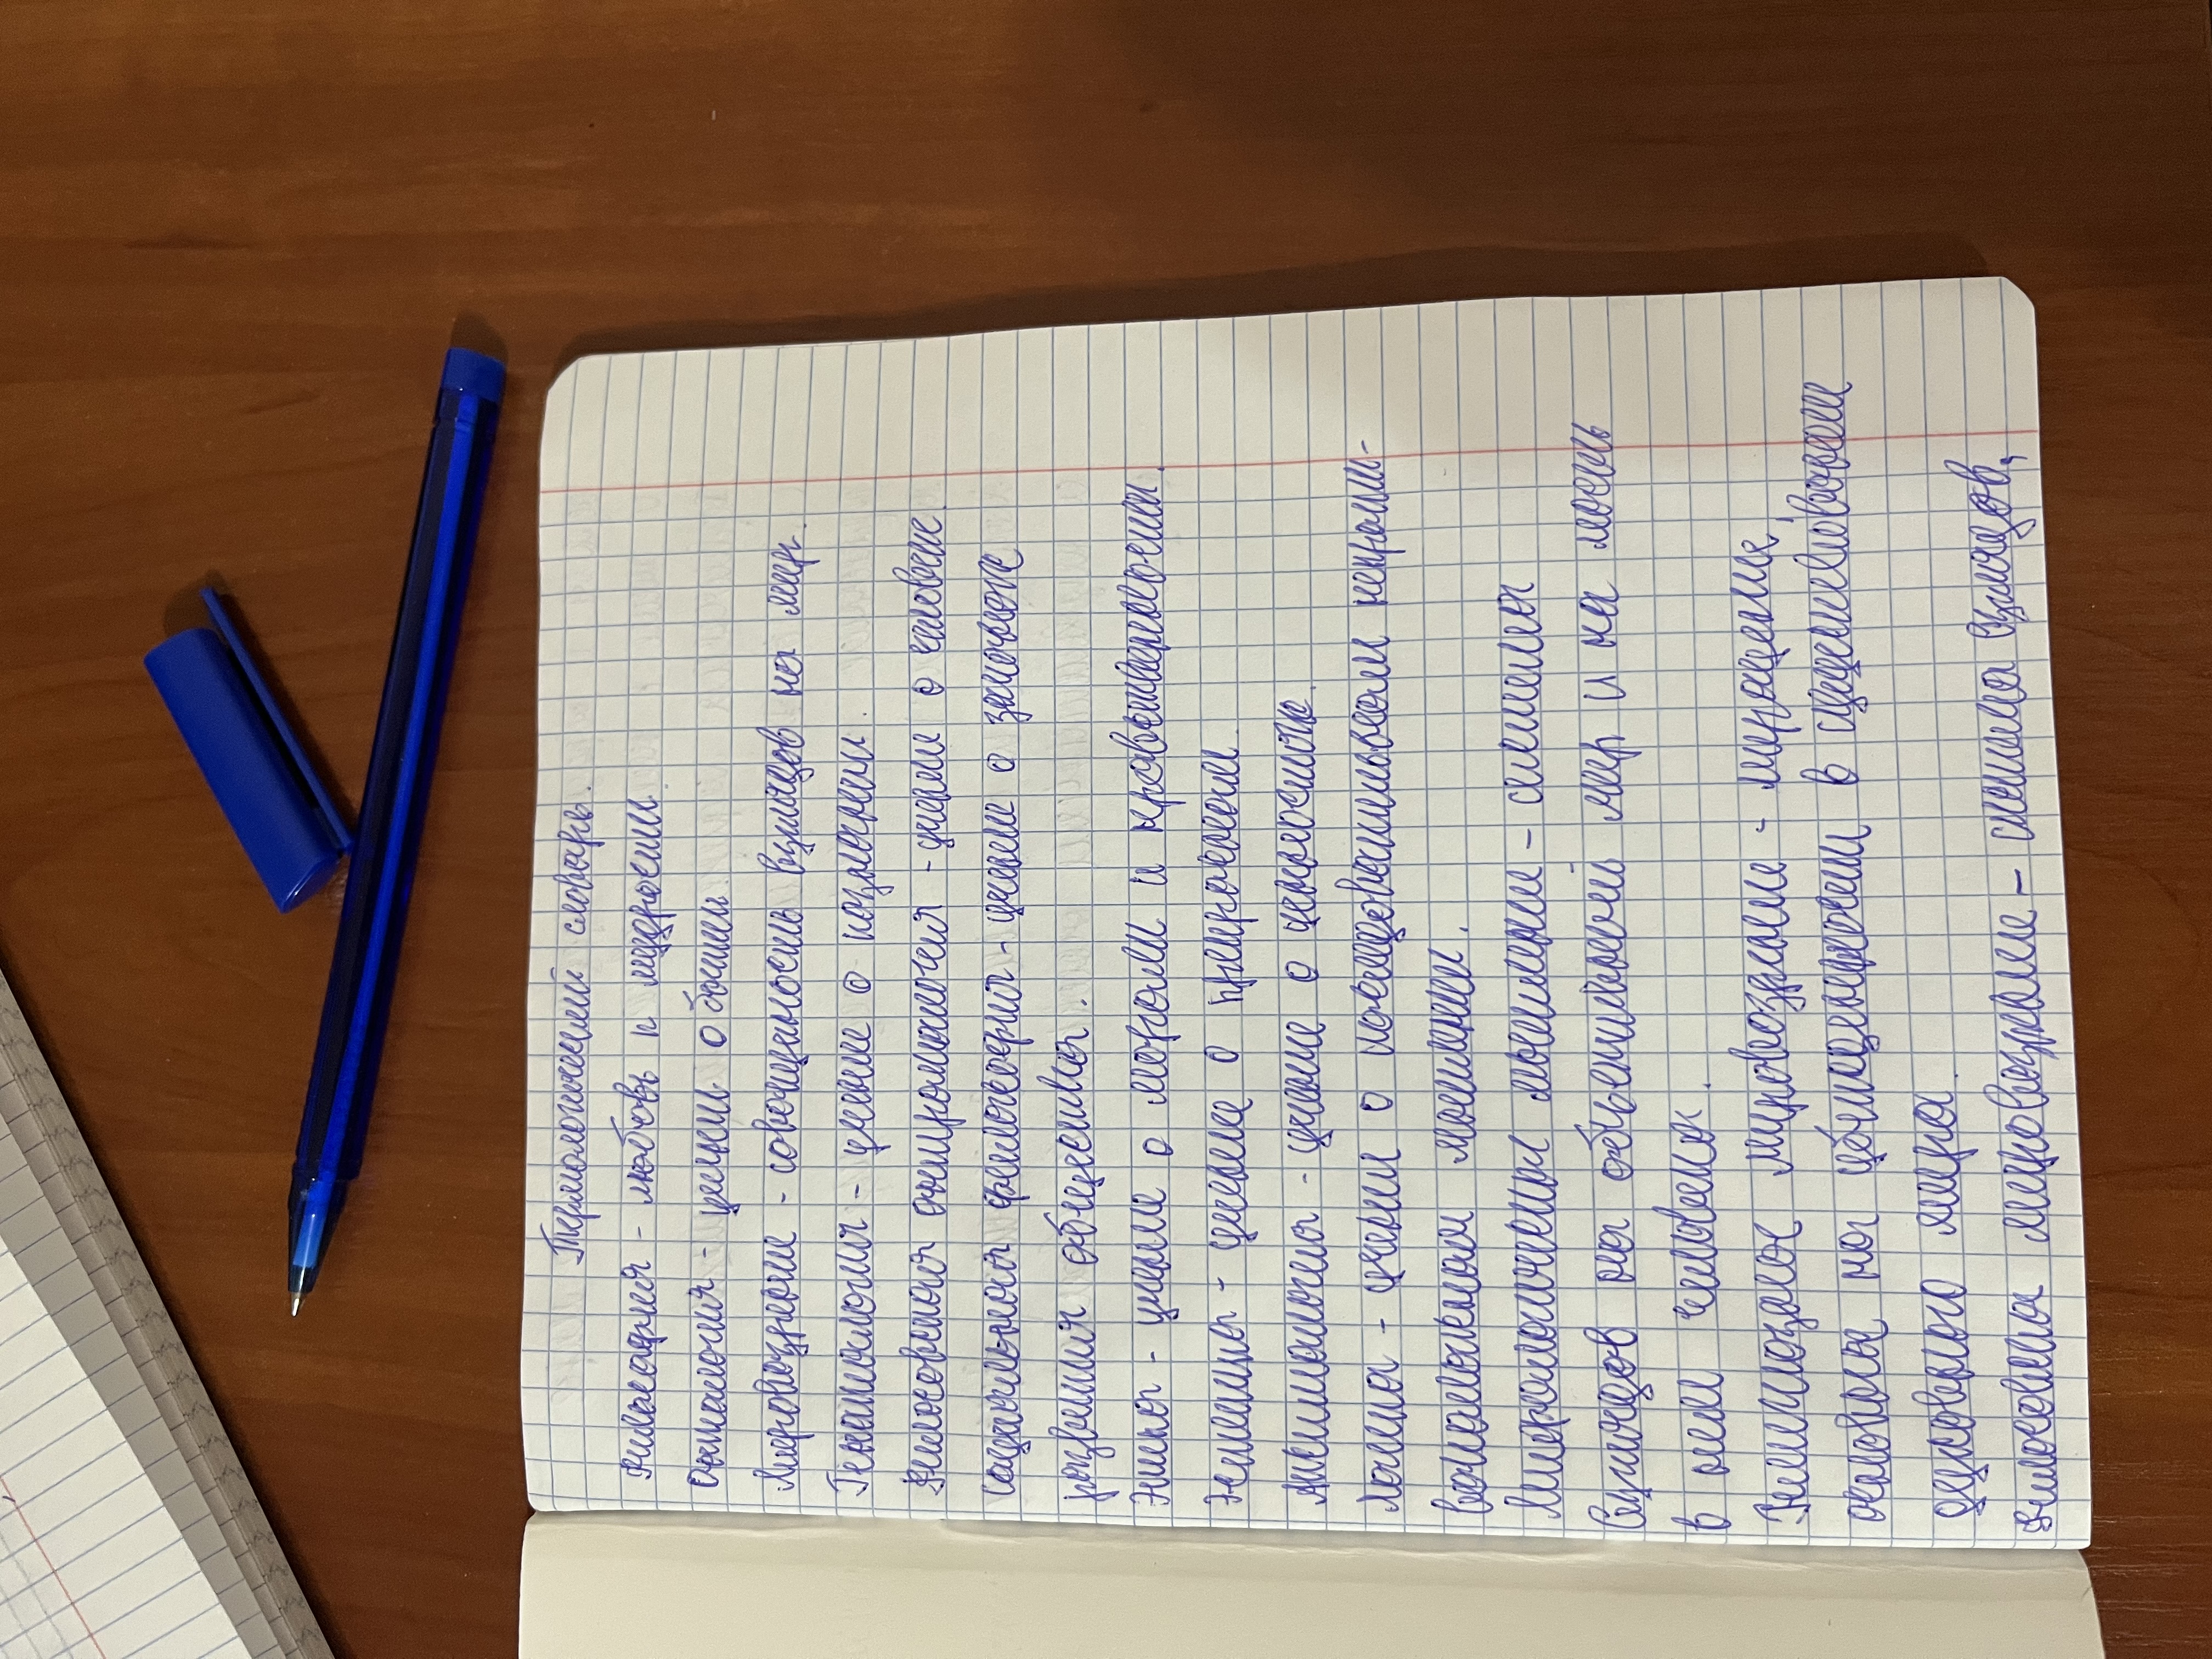 Термологический словарь.
Философия - любовь к мудрости.
Онтология - учение о бытии.
Мировоззрение - совокупность взглядов на мир.
Гносеология - учение о познании.
Философская антропология - учение о человеке.
Социальная философия - учение о
развития общества.
Этика - учение о морали и нравственности.
Эстетика - учение о прекрасном.
Аксиология - учение о ценностях.
Логика - учение о последовательном
мышлении.
Мифологическое мышление - система
взглядов на объективный мир и на место
в нём человека.
Религиозное мировоззрение -
основана на убеждении в существовании
мира.
Философское мировоззрение - система взглядов,